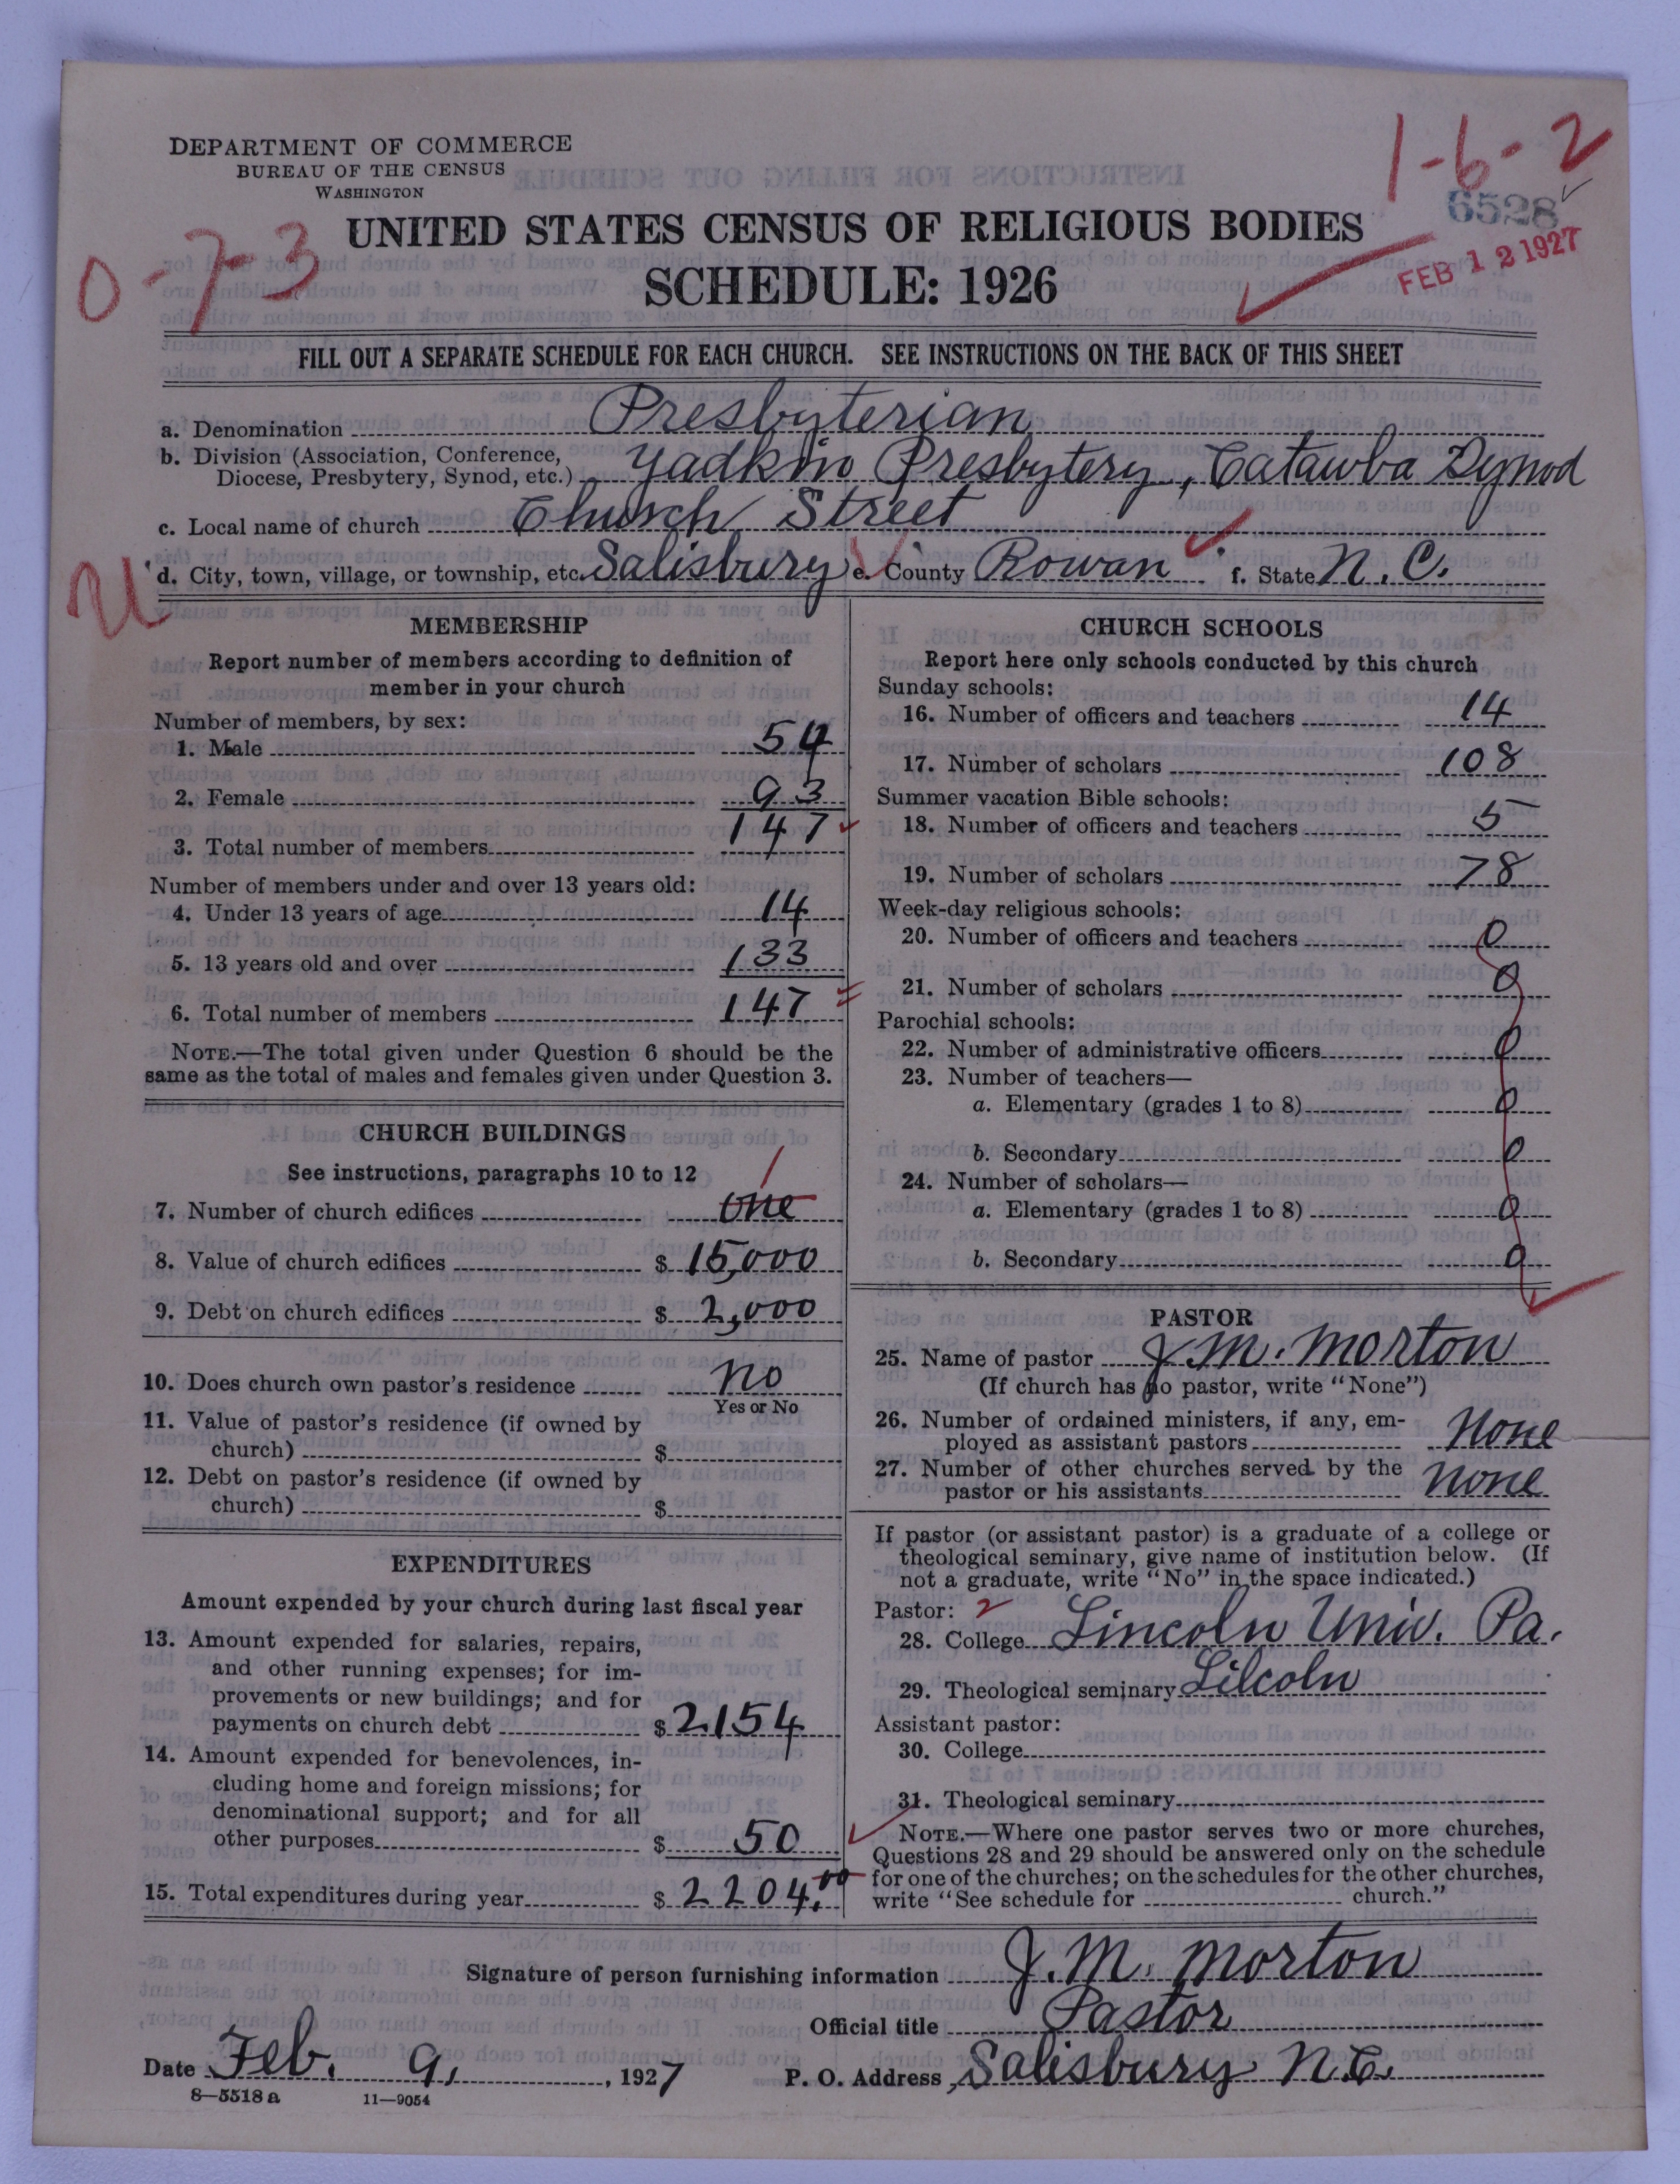 DEPARTMENT OF COMMERCE
BUREAU OF THE CENSUS
WASHINGTON
1-6-2
6528
0-7-3
UNITED STATES CENSUS OF RELIGIOUS BODIES
SCHEDULE: 1926
FEB 12 1927
FILL OUT A SEPARATE SCHEDULE FOR EACH CHURCH. SEE INSTRUCTIONS ON THE BACK OF THIS SHEET
a. Denomination Presbyterian
b. Division (Association, Conference,
Diocese, Presbytery, Synod, etc.) Yadkin Presbytery, Catawba Synod
c. Local name of church Church Street
d. City, town, village, or township, etc. Salisbury e. County Rowan f. State N. C.
U
MEMBERSHIP
Report number of members according to definition of
member in your church
Number of members, by sex:
1. Male 54
2. Female 93
3. Total number of members 147
Number of members under and over 13 years old:
4. Under 13 years of age 14
5. 13 years old and over 133
6. Total number of members 147
NOTE.—The total given under Question 6 should be the
same as the total of males and females given under Question 3.
CHURCH BUILDINGS
See instructions, paragraphs 10 to 12
1
7. Number of church edifices one
8. Value of church edifices $ 15,000
9. Debt on church edifices $ 2,000
10. Does church own pastor's residence No
Yes or No
11. Value of pastor's residence (if owned by
church) $
12. Debt on pastor's residence (if owned by
church) $
EXPENDITURES
Amount expended by your church during last fiscal year
13. Amount expended for salaries, repairs,
and other running expenses; for im-
provements or new buildings; and for
payments on church debt $ 2154
14. Amount expended for benevolences, in-
cluding home and foreign missions; for
denominational support; and for all
other purposes $ 50
15. Total expenditures during year $ 2204.00
CHURCH SCHOOLS
Report here only schools conducted by this church
Sunday schools:
16. Number of officers and teachers 14
17. Number of scholars 108
Summer vacation Bible schools:
18. Number of officers and teachers 5
19. Number of scholars 78
Week-day religious schools:
20. Number of officers and teachers 0
21. Number of scholars 0
Parochial schools:
22. Number of administrative officers 0
23. Number of teachers—
a. Elementary (grades 1 to 8) 0
b. Secondary 0
24. Number of scholars—
a. Elementary (grades 1 to 8) 0
b. Secondary 0
PASTOR
25. Name of pastor J. M. Morton
(If church has no pastor, write "None")
26. Number of ordained ministers, if any, em-
ployed as assistant pastors None
27. Number of other churches served by the
pastor or his assistants None
If pastor (or assistant pastor) is a graduate of a college or
theological seminary, give name of institution below. (If
not a graduate, write "No" in the space indicated.)
Pastor: 2
28. College Lincoln Univ. Pa.
29. Theological seminary Lilcoln
Assistant pastor:
30. College
31. Theological seminary
NOTE.—Where one pastor serves two or more churches,
Questions 28 and 29 should be answered only on the schedule
for one of the churches; on the schedules for the other churches,
write "See schedule for church."
Signature of person furnishing information J. M. Morton
Official title Pastor
Date Feb. 9, 1927 P. O. Address Salisbury N.C.
8—5518 a 11—9054